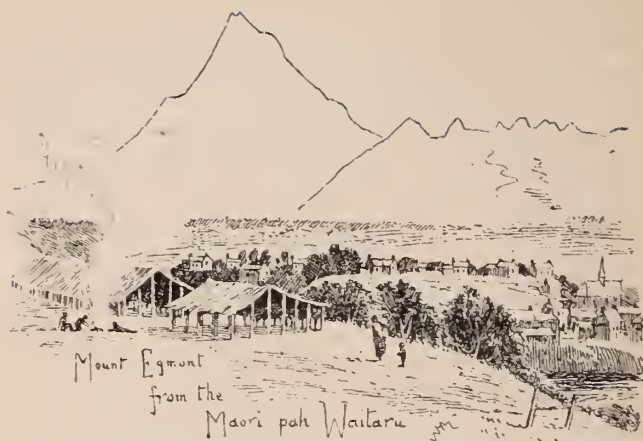 Mount Egmont
from the
Maori pah Waitaru